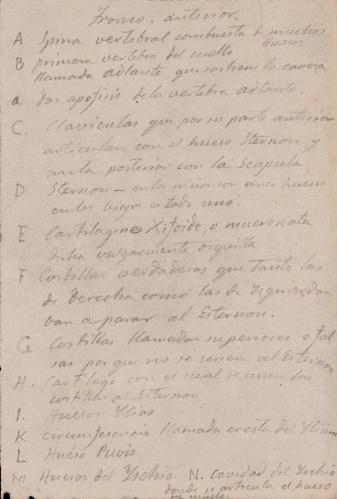 Tronco. anterior.
A Spina vertebral compuesta de muchos
huesos
B primera vertebra del cuello
llamada adlante que sostiene la cavesa
a dos apofisis de la vertebra adlante.
C. Claviculas que por su parte anterior
articulan con el hueso Sternon y
en la posterior con la Scapula
D Sternon – en los niños son hueso
en los viejos es todo uno.
E Cartilagines Xifoide, o mucronata
dicha vulgarmente orquilla
F Costillas verdaderas que tanto las
de derecha como las de Yzquierdan
van a parar al Esternon.
G Costillas llamadas superiores o fal
sas por que no se unen al Esternon
H. Cartilago con el cual se unen las
costillas al Esternon
I. Huesos Ylios
K circumferencia llamada cresta del Ylium
L Hueso Puvis
M Huesos del Yschio. N. Cavidad del Yschio
donde se articula el hueso
del muslo